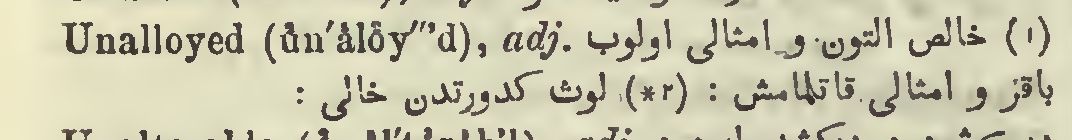 Unalloyed (ůn'ålôy''d), adj. (١) خالص التون و امثالى اولوب
باقز و امثالى قاتلمامش : (*٢) لوث كدورتدن خالى :